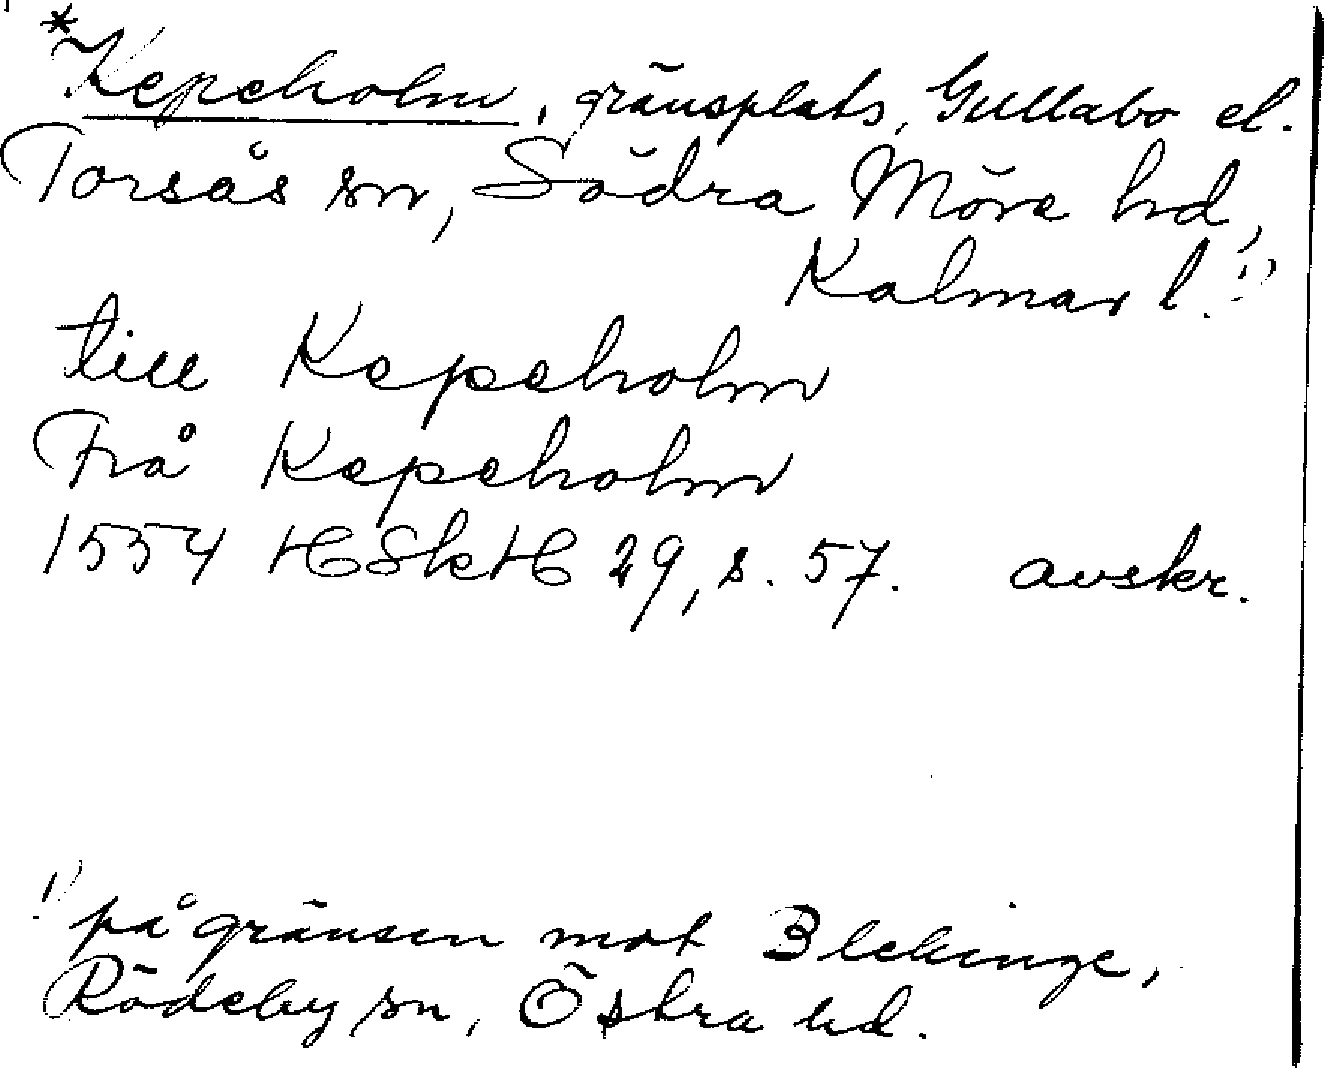 *Kepeholm, gränsplats, Gullabo el.
Torsås sn, Södra Möre hd,
Kalmar l. 1)
till Kepeholm
Frå Kepeholm
1554 HSkH 29, s. 57. avskr.
1) på gränsen mot Blekinge,
Rödeby sn, Östra hd.